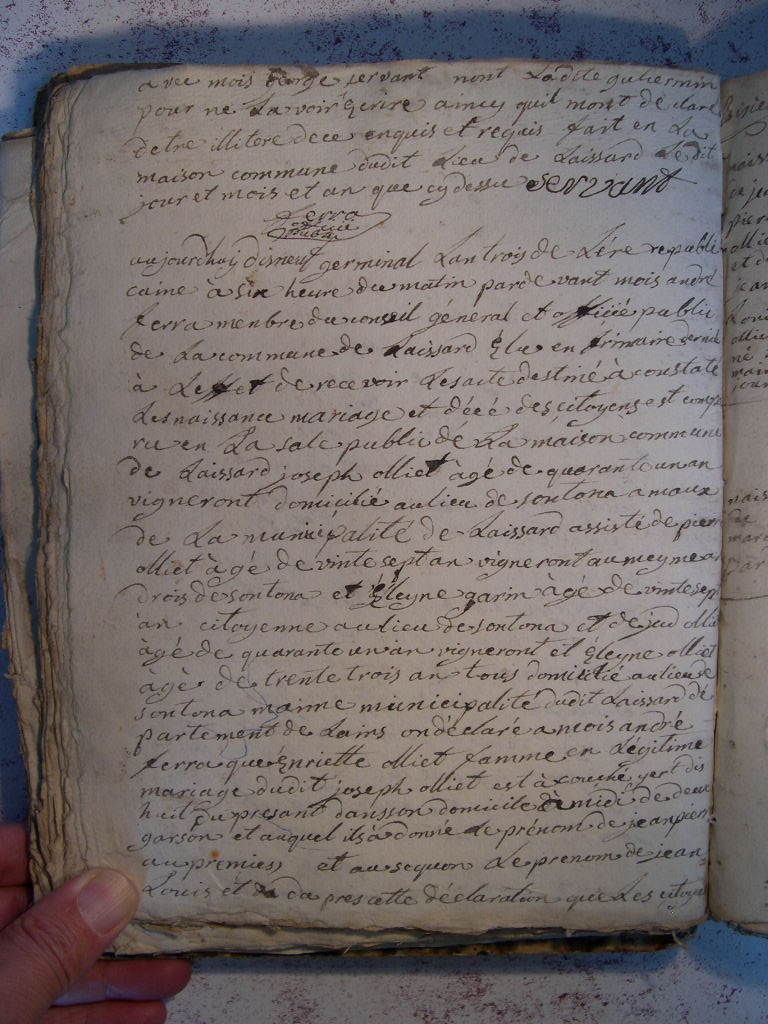 avec mois berge servant nont Ladite guliermin
pour ne La voir Ecrire aincy quil mont de clare
detre illitere dece enquis et requis fait en La
maison commune dudit Lieu de Laissard Le dit
jour et mois et an que cy dessu servant
ferra
officié
public
aujourdhuij disneuf germinal Lan trois de Lére republi
caine à six heure du matin parde vant mois andré
ferra menbre du conseil général et officié public
de La commune de Laissard Elu en frimaire dernié
à Leffet de recevoir Lesacte destiné à constaté
Lesnaissance mariage et décé descitoyens est compa
ru en La sale public dé La máison commune
de Laissard joseph olliet àgé de quarante un an
vigneront domicilié aulieu de sontona a maux
de La municipalité de Laissard assisté de pierr
olliet àgé de vinte sept an vigneront au meyme an
drois de sontona et Eleyne garin àgé de vinte sep
an citoyenne aulieu de sontona et de jud olli
àgé de quarante un an vigneront et Eleyne olliet
àgè de trente trois an tous domicilié aulieu de
sontona mainne municipalité dudit Laissard dé
partement de Lains on déclaré a mois andré
ferra que Enriette olliet famme en Légitime
mariage dudit joseph olliet est à couché yert dis
huit du presant dansson domicile à midi de deux
garson et auquel ils à donné Le prénom de jean pierr
au premies et au sequon Le prenom de jean
Louis et da pres cette déclaration que Les citoye